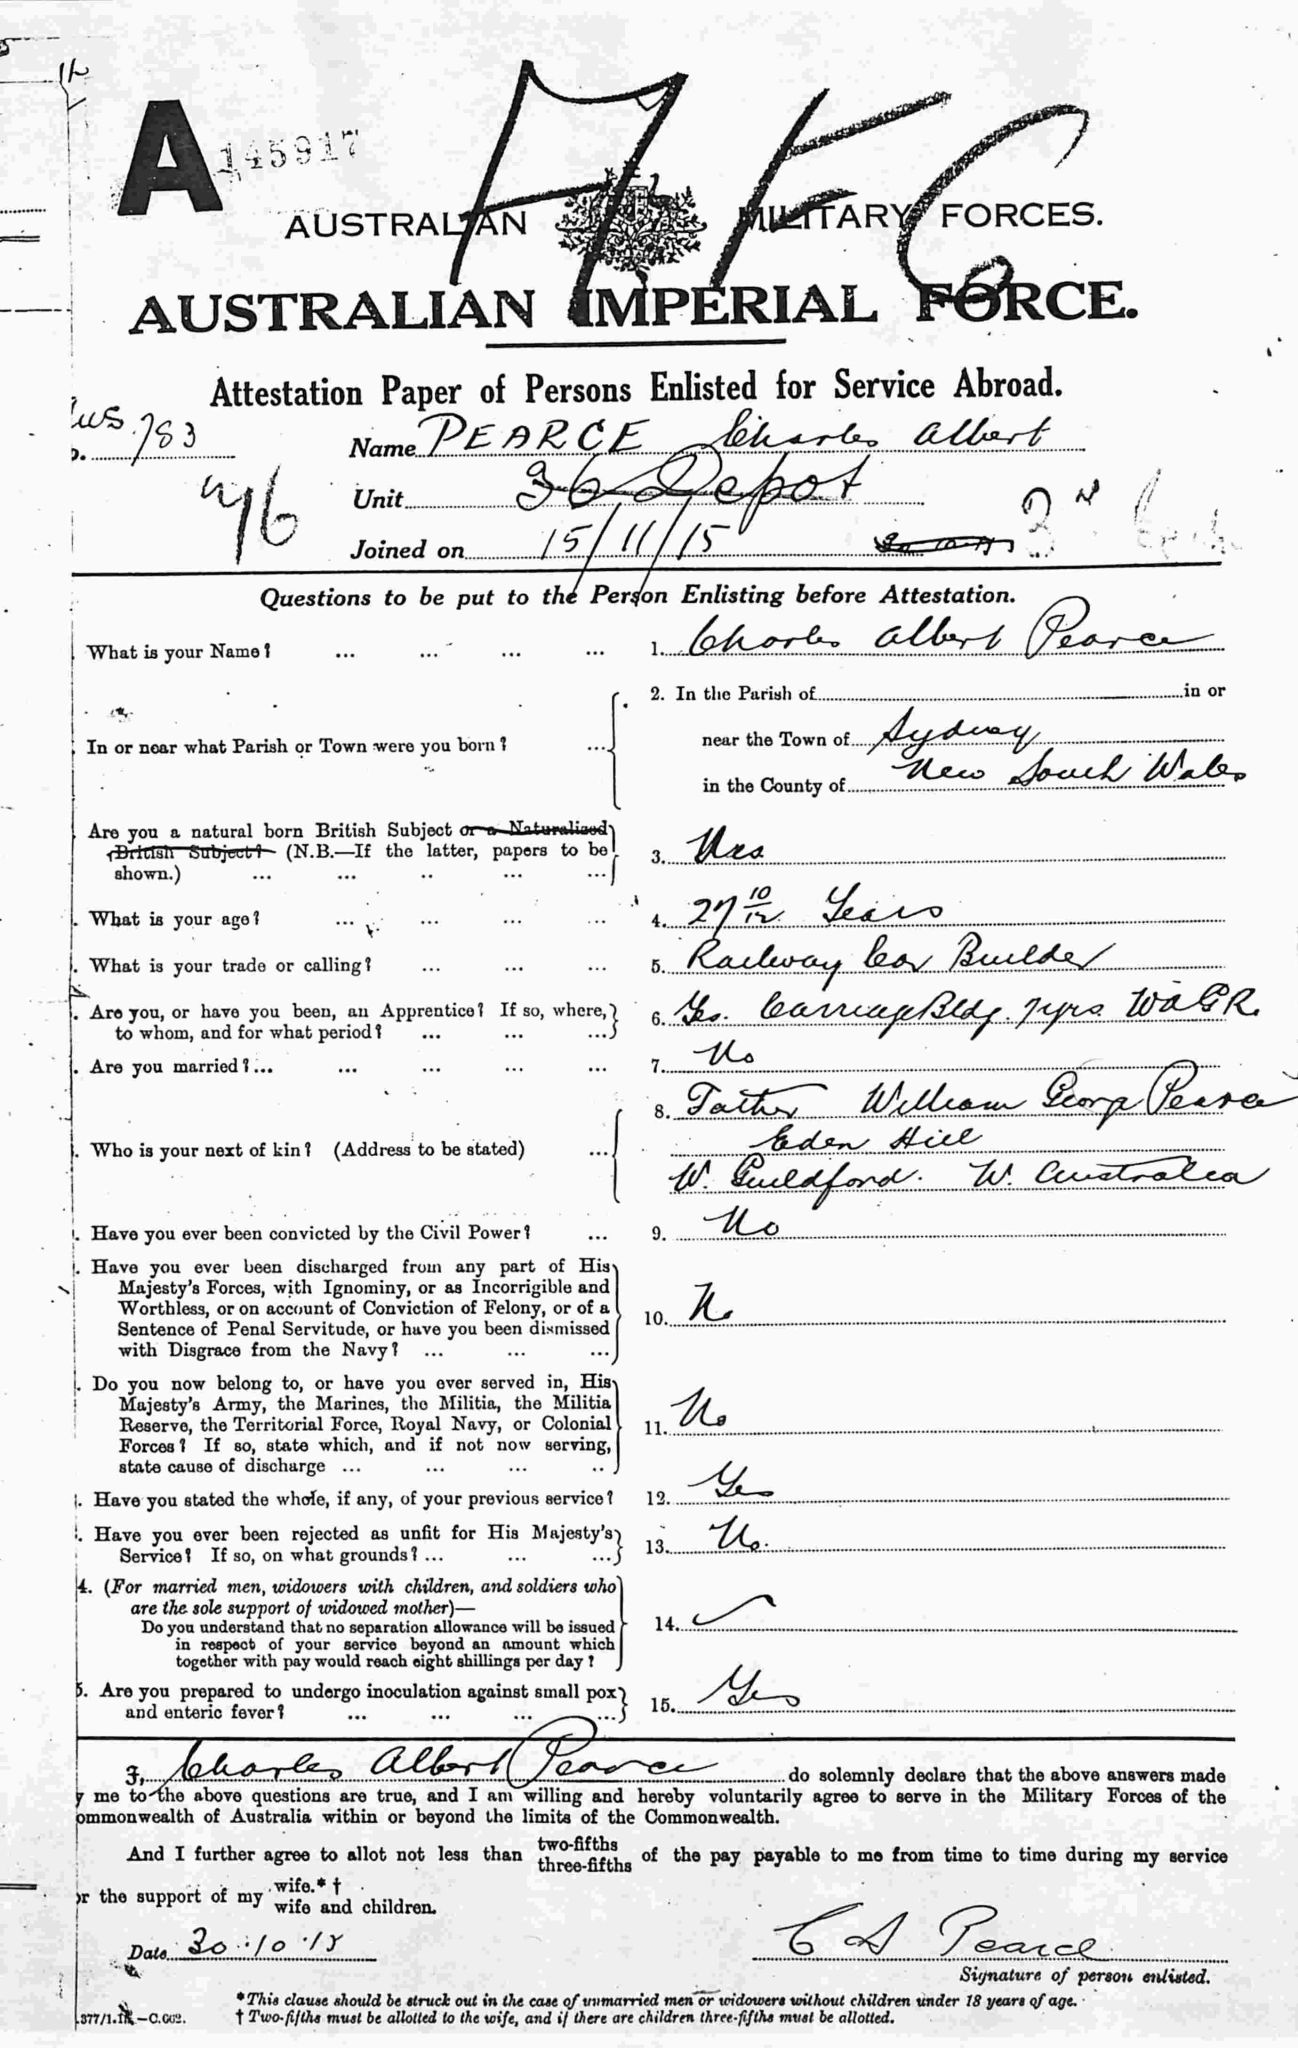 A 145917
AFC
AUSTRALIAN MILITARY FORCES.
AUSTRALIAN IMPERIAL FORCE.
Attestation Paper of Persons Enlisted for Service Abroad.
783
Name PEARCE Charles Albert
Unit 36 Depot
Joined on 15/11/15
Questions to be put to the Person Enlisting before Attestation.
What is your Name? ... ... ... ... 1. Charles Albert Pearce
2. In the Parish of in or
In or near what Parish or Town were you born? ... near the Town of Sydney
in the County of New South Wales
Are you a natural born British Subject or a Naturalized
British Subject? (N.B.—If the latter, papers to be
shown.) ... ... .. ... ... 3. Yes
. What is your age? ... ... ... ... 4. 27 10/12 Years
. What is your trade or calling? ... ... ... 5. Railway Car Builder
. Are you, or have you been, an Apprentice? If so, where,
to whom, and for what period? ... ... ... 6. Yes. Carriage Bldg. 7 yrs. WAGR.
. Are you married? ... ... ... ... ... 7. No
8. Father William George Pearce
. Who is your next of kin? (Address to be stated) ... Eden Hill
W. Guildford. W. Australia
. Have you ever been convicted by the Civil Power? ... 9. No
. Have you ever been discharged from any part of His
Majesty's Forces, with Ignominy, or as Incorrigible and
Worthless, or on account of Conviction of Felony, or of a
Sentence of Penal Servitude, or have you been dismissed
with Disgrace from the Navy? ... ... ... 10. No
. Do you now belong to, or have you ever served in, His
Majesty's Army, the Marines, the Militia, the Militia
Reserve, the Territorial Force, Royal Navy, or Colonial
Forces? If so, state which, and if not now serving,
state cause of discharge ... ... ... .. 11. No
. Have you stated the whole, if any, of your previous service? 12. Yes
. Have you ever been rejected as unfit for His Majesty's
Service? If so, on what grounds? ... ... ... 13. No.
4. (For married men, widowers with children, and soldiers who
are the sole support of widowed mother)—
Do you understand that no separation allowance will be issued
in respect of your service beyond an amount which
together with pay would reach eight shillings per day? 14.
5. Are you prepared to undergo inoculation against small pox
and enteric fever? ... ... ... ... 15. Yes
I, Charles Albert Pearce do solemnly declare that the above answers made
y me to the above questions are true, and I am willing and hereby voluntarily agree to serve in the Military Forces of the
ommonwealth of Australia within or beyond the limits of the Commonwealth.
And I further agree to allot not less than two-fifths three-fifths of the pay payable to me from time to time during my service
or the support of my wife.*† wife and children.
Date 30.10.15 C A Pearce
Signature of person enlisted.
*This clause should be struck out in the case of unmarried men or widowers without children under 18 years of age.
† Two-fifths must be allotted to the wife, and if there are children three-fifths must be allotted.